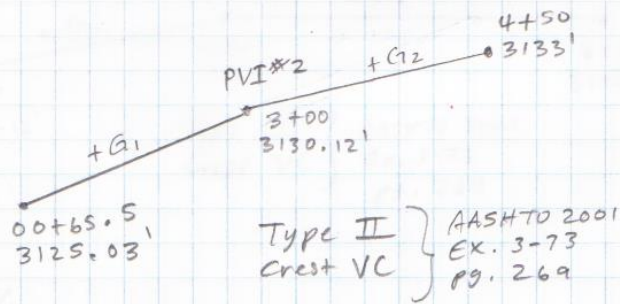 4+50
3133'
+G2
PVI#2
3+00
3130.12'
+G1
00+65.5
3125.03'
Type II
Crest VC
AASHTO 2001
Ex. 3-73
pg. 269